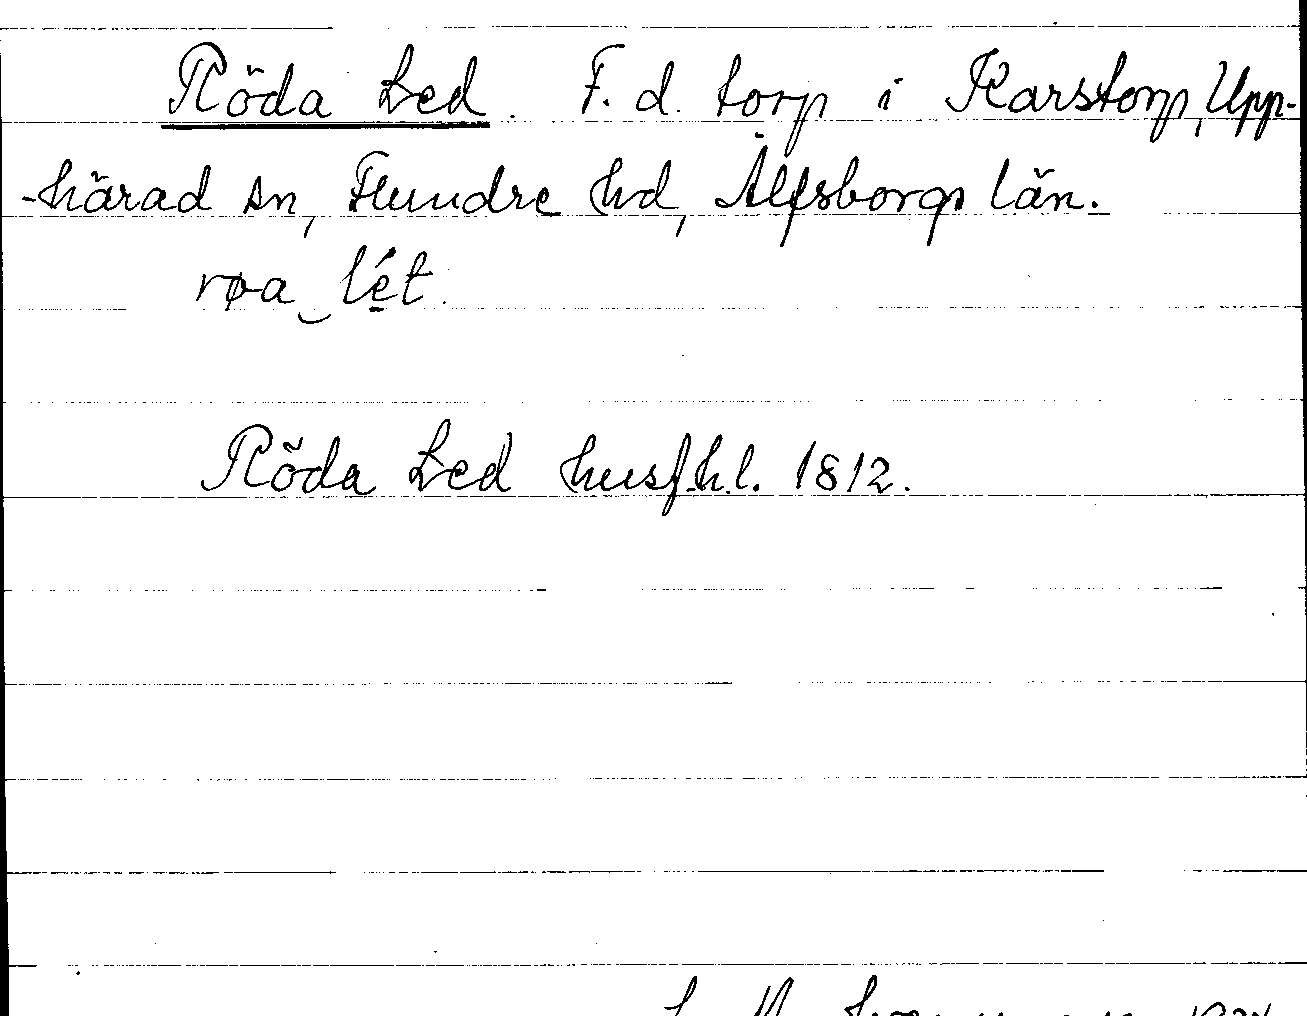 Röda Led. F. d. torp i Karstorp, Upp-
-härad sn, Flundre hd, Älfsborgs län.
røa‿lét.
Röda Led husf.h.l. 1812.